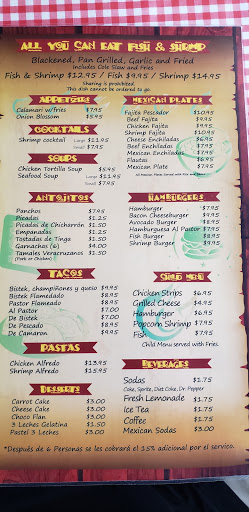 ALL YOU CAN EAT FISH & SHRIMP
Blackened, Pan Grilled, Garlic and Fried
Includes Cole Slaw and Fries
Fish & Shrimp $12.95 / Fish $9.95 / Shrimp $14.95
Sharing is prohibited.
This dish cannot be ordered to go.
APPETIZERS
Calamari w/fries $7.95
Onion Blossom $5.95
COCKTAILS
Shrimp cocktail Large $11.95
Small $7.95
SOUPS
Chicken Tortilla Soup $5.95
Seafood Soup Large $13.95
Small $7.95
ANTOJITOS
Panchos $7.95
Picadas $1.25
Picadas de Chicharrón $1.50
Empanadas $1.50
Tostadas de Tinga $1.50
Garnachas (4) $4.00
Tamales Veracruzanos $1.50
(Pork or Chicken)
TACOS
Bistek, champiñones y queso $9.95
Bistek Flameado $8.95
Pastor Flameado $8.95
Al Pastor $7.00
De Bistek $7.00
De Pescado $8.95
De Camaron $9.95
PASTAS
Chicken Alfredo $13.95
Shrimp Alfredo $15.95
DESSERTS
Carrot Cake $3.00
Cheese Cake $3.00
Choco Flan $3.00
3 Leches Gelatina $1.50
Pastel 3 Leches $3.00
MEXICAN PLATES
Fajita Pescador $10.95
Beef Fajita $9.95
Chicken Fajita $9.95
Shrimp Fajita $10.95
Cheese Enchiladas
Beef Enchiladas $7.95
Mexican Enchiladas $7.95
Flautas $6.95
Mexican Plate $7.95
All Mexican Plates Served with Rice and Beans
HAMBURGERS
Hamburger $7.95
Bacon Cheeseburger $9.95
Avocado Burger $8.95
Hamburguesa Al Pastor $7.95
Fish Burger $8.95
Shrimp Burger $9.95
CHILD MENU
Chicken Strips $6.95
Grilled Cheese $4.95
Hamburger $6.95
Popcorn Shrimp $7.95
Fish
Child Menu served with Fries.
BEVERAGES
Sodas $1.75
Coke, Sprite, Diet Coke, Dr. Pepper
Fresh Lemonade $1.75
Ice Tea $1.75
Coffee $1.75
Mexican Sodas $3.00
*Después de 6 Personas se les cobrará el 15% adicional por el servico.